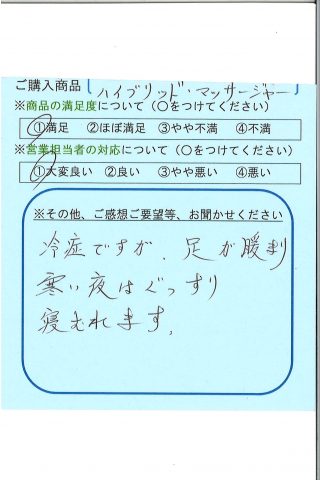 ご購入商品 [ハイブリッド・マッサージャー
※商品の満足度について（○をつけてください）
①満足 ②ほぼ満足 ③やや不満 ④不満
※営業担当者の対応について（○をつけてください）
①大変良い ②良い ③やや悪い ④悪い
※その他、ご感想ご要望等、お聞かせください
冷症ですが、足が暖まり
寒い夜はぐっすり
寝むれます。